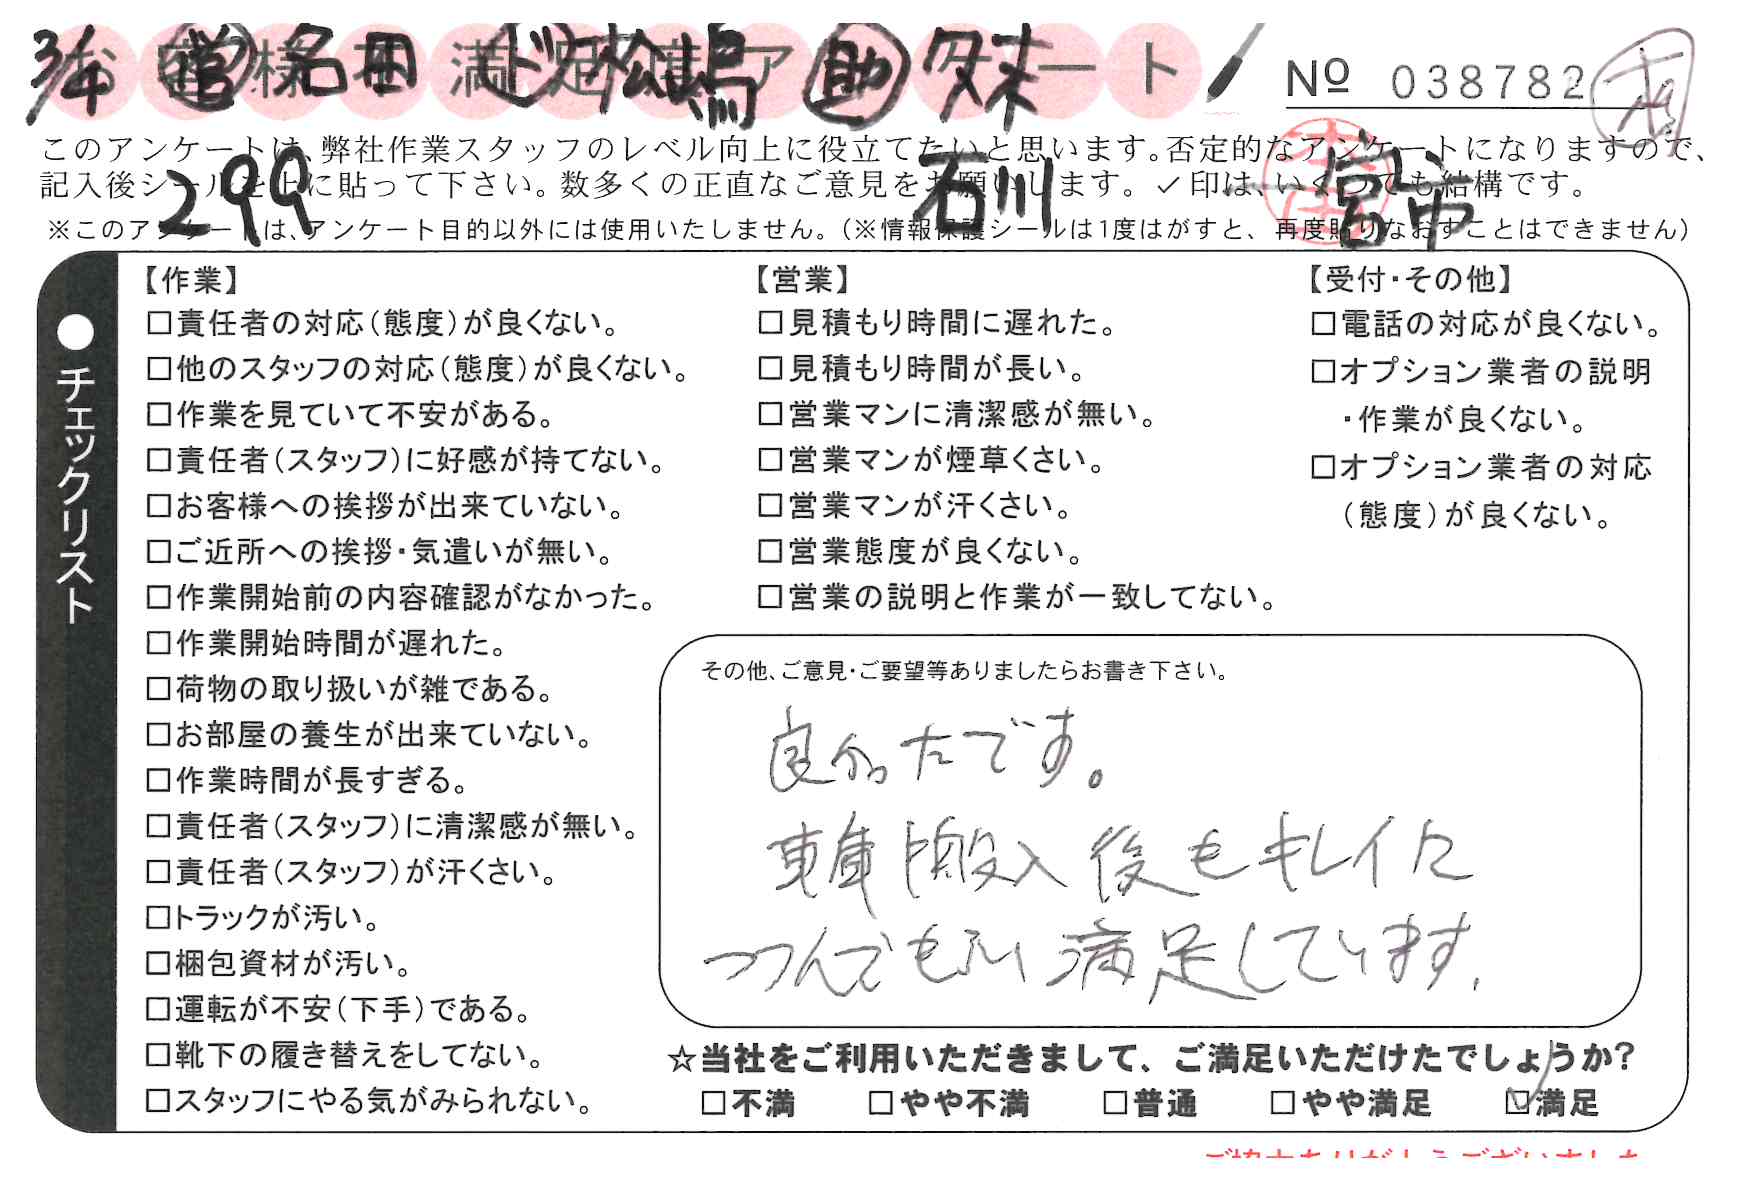 お客様 満足度アンケート
3/4 営 名田 ド 松嶋 助
No 038782
このアンケートは、弊社作業スタッフのレベル向上に役立てたいと思います。否定的なアンケートになりますので、
記入後シールを上に貼って下さい。数多くの正直なご意見をお願いします。✓印は、いくつでも結構です。
299 石川 宮市
※このアンケートは、アンケート目的以外には使用いたしません。(※情報保護シールは1度はがすと、再度貼りなおすことはできません)
●チェックリスト
【作業】
□責任者の対応(態度)が良くない。
□他のスタッフの対応(態度)が良くない。
□作業を見ていて不安がある。
□責任者(スタッフ)に好感が持てない。
□お客様への挨拶が出来ていない。
□ご近所への挨拶・気遣いが無い。
□作業開始前の内容確認がなかった。
□作業開始時間が遅れた。
□荷物の取り扱いが雑である。
□お部屋の養生が出来ていない。
□作業時間が長すぎる。
□責任者(スタッフ)に清潔感が無い。
□責任者(スタッフ)が汗くさい。
□トラックが汚い。
□梱包資材が汚い。
□運転が不安(下手)である。
□靴下の履き替えをしてない。
□スタッフにやる気がみられない。
【営業】
□見積もり時間に遅れた。
□見積もり時間が長い。
□営業マンに清潔感が無い。
□営業マンが煙草くさい。
□営業マンが汗くさい。
□営業態度が良くない。
□営業の説明と作業が一致してない。
【受付・その他】
□電話の対応が良くない。
□オプション業者の説明
・作業が良くない。
□オプション業者の対応
(態度)が良くない。
その他、ご意見・ご要望等ありましたらお書き下さい。
良かったです。
車庫搬入後もキレイに
つつんでもらい満足しています.
☆当社をご利用いただきまして、ご満足いただけたでしょうか?
□不満 □やや不満 □普通 □やや満足 ☑満足
ご協力ありがとうございました